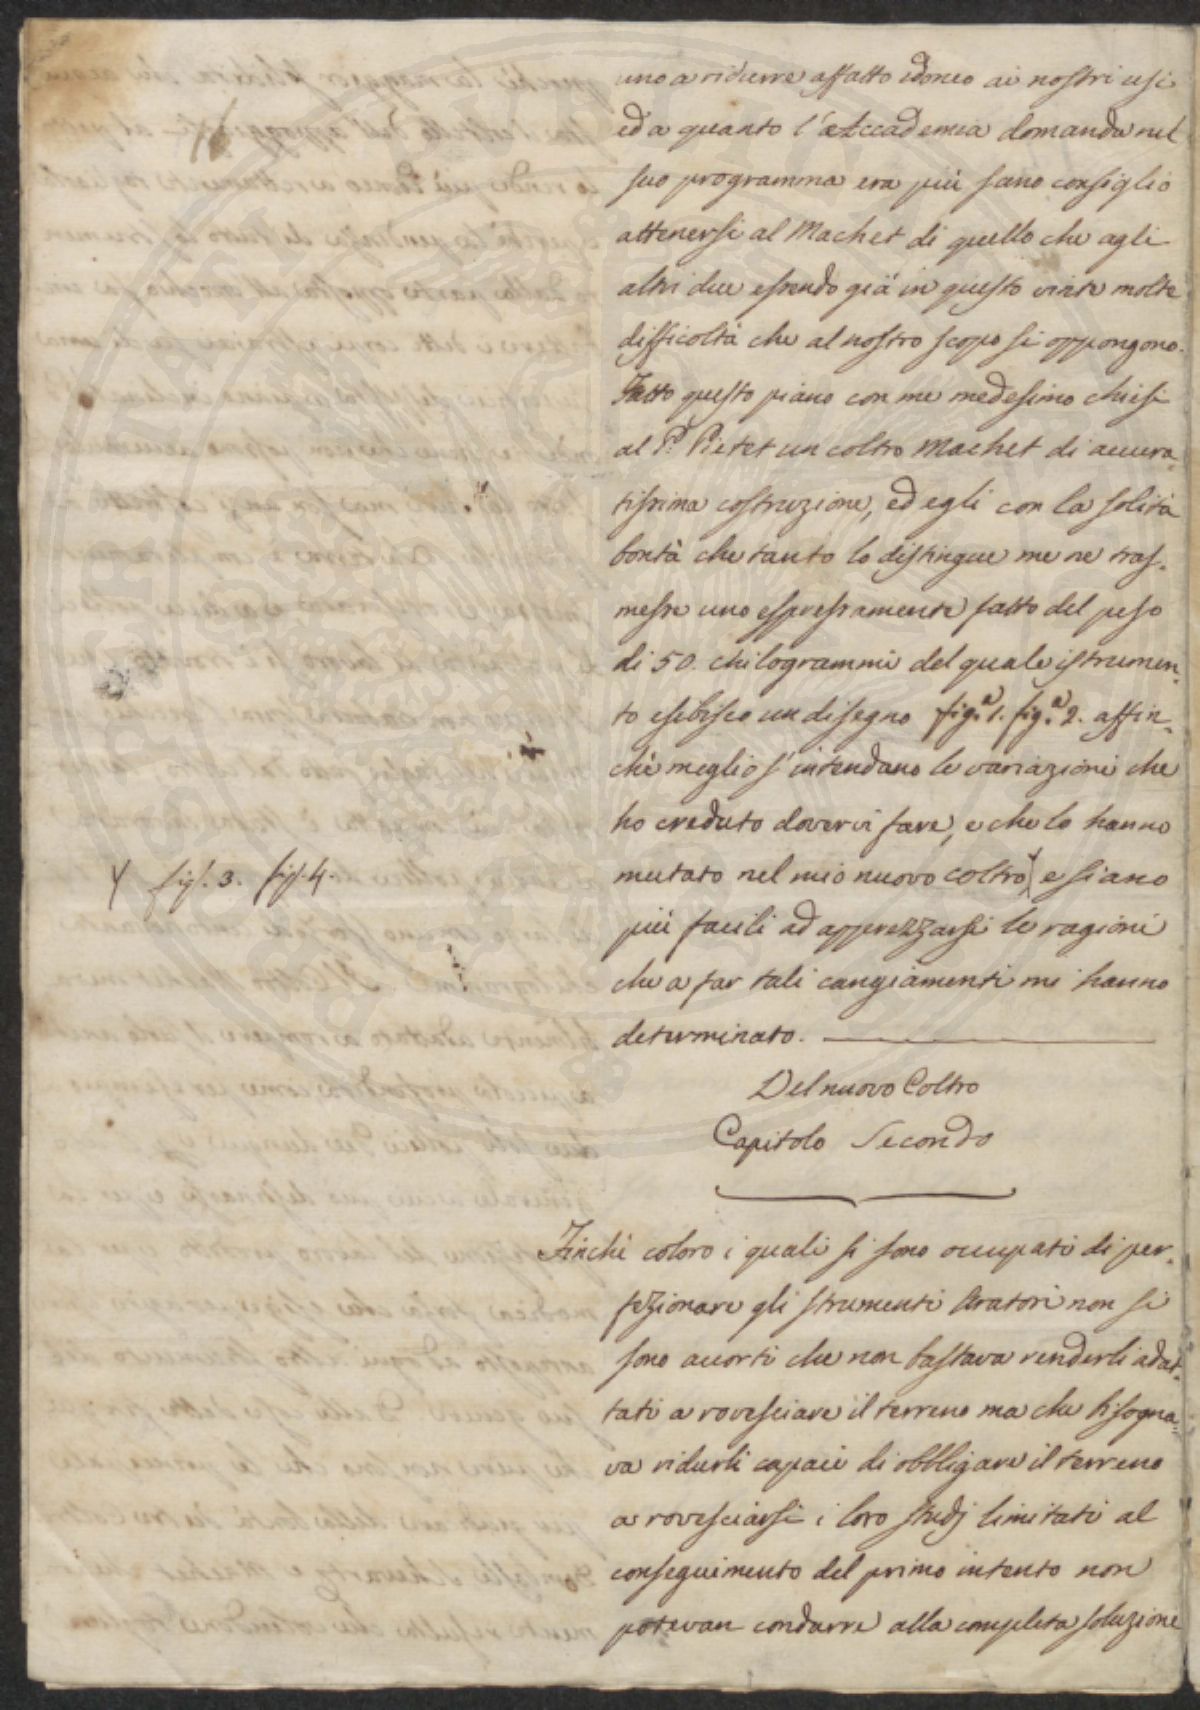 uno a ridurre affatto idoneo ai nostri usi
ed a quanto l'Accademia domanda nel
suo programma era più sano consiglio
attenersi al Machet di quello che agli
altri due essendo già in questo vinte molte
difficoltà che al nostro scopo si oppongono.
Fatto questo piano con me medesimo chiesi
al P. Pictet un coltro Machet di accura-
tissima costruzione, ed egli con la solita
bontà che tanto lo distingue me ne tras-
messe uno espressamente fatto del peso
di 50. chilogrammi del quale istrumen-
to esebisco un disegno fig.a 1. fig.a 2. affin-
chè meglio s'intendano le variazioni che
ho creduto dovervi fare, e che lo hanno
mutato nel mio nuovo coltro Y e siano
Y fig. 3. fig. 4.
più facili ad apprezzarsi le ragioni
che a far tali cangiamenti mi hanno
determinato.
Del nuovo Coltro
Capitolo Secondo
Finchè coloro i quali si sono occupati di per-
fezionare gli strumenti Aratori non si
sono accorti che non bastava renderli adat-
tati a rovesciare il terreno ma che bisogna-
va ridurli capaci di obbligare il terreno
a rovesciarsi i loro studj limitati al
conseguimento del primo intento non
potevan condurre alla completa soluzione